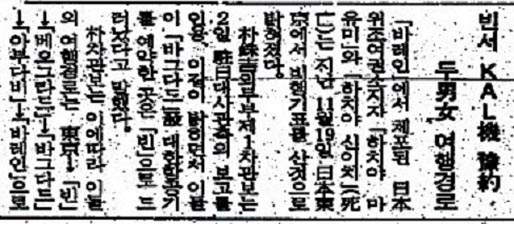 빈서 KAL機 豫約
두男女 여행경로
「바레인」에서 체포된 日本
위조여권소지자 「하치야 마
유미」와 「하치야 신이치」(死
亡)는 지난 11월19일 日本東
京에서 비행기표를 산것으로
밝혀졌다.
朴銖吉외무부제1차관보는
2일 駐日대사관측의 보고를
인용, 이같이 밝히면서 이들
이 「바그다드」發 대한항공기
를 예약한 곳은 「빈」으로 드
러났다고 말했다.
朴차관보는 이에따라 이들
의 여행경로는 東京→「빈」
→「베오그라드」→「바그다드」
→「아부다비」→「바레인」으로